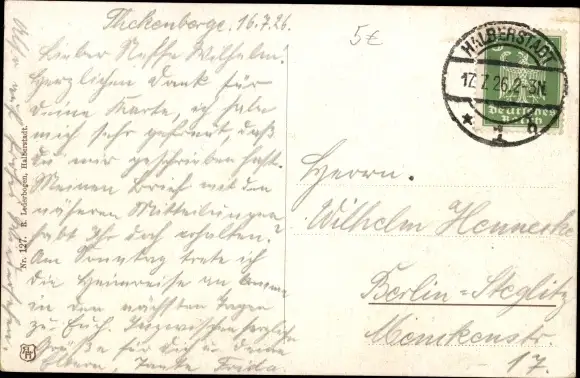 Theckenberge, 16.7.26.
Lieber Neffe Wilhelm!
Herzlichen Dank für
deine Karte, ich habe
mich sehr gefreut, daß
du mir geschrieben hast.
Meinen Brief mit den
näheren Mitteilungen
habt Ihr doch erhalten?
Am Sonntag trete ich
die Heimreise an, komme
in den nächsten Tagen
zu Euch. Inzwischen herzliche
Grüße für dich u. deine
Eltern, Tante Frida.
5€
HALBERSTADT
17.7.26.2-3N.
* 1 q
Deutsches
Reich
Herrn.
Wilhelm Hennecke
Berlin-Steglitz
Menckenstr.
17.
Nr. 127. R. Lederbogen, Halberstadt.